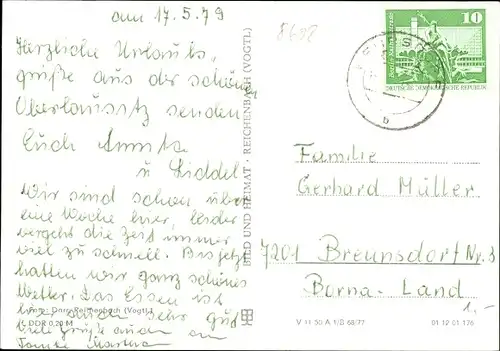 am 17.5.79
Herzliche Urlaubs-
grüße aus der schönen
Oberlausitz senden
Euch Annita
u. Siddel
Wir sind schon über
eine Woche hier, leider
vergeht die Zeit immer
viel zu schnell. Bis jetzt
hatten wir ganz schönes
Wetter. Das Essen ist
hier auch sehr gut
viele Grüße auch an
Tante Martha
Reichenbach (Vogtl.)
DDR 0,20 M
BILD UND HEIMAT · REICHENBACH (VOGTL)
10
DEUTSCHE DEMOKRATISCHE REPUBLIK
b
Familie
Gerhard Müller
7201 Breunsdorf Nr. 3
Borna-Land
1,-
V 11 50 A 1/B 68/77
01 12 01 176